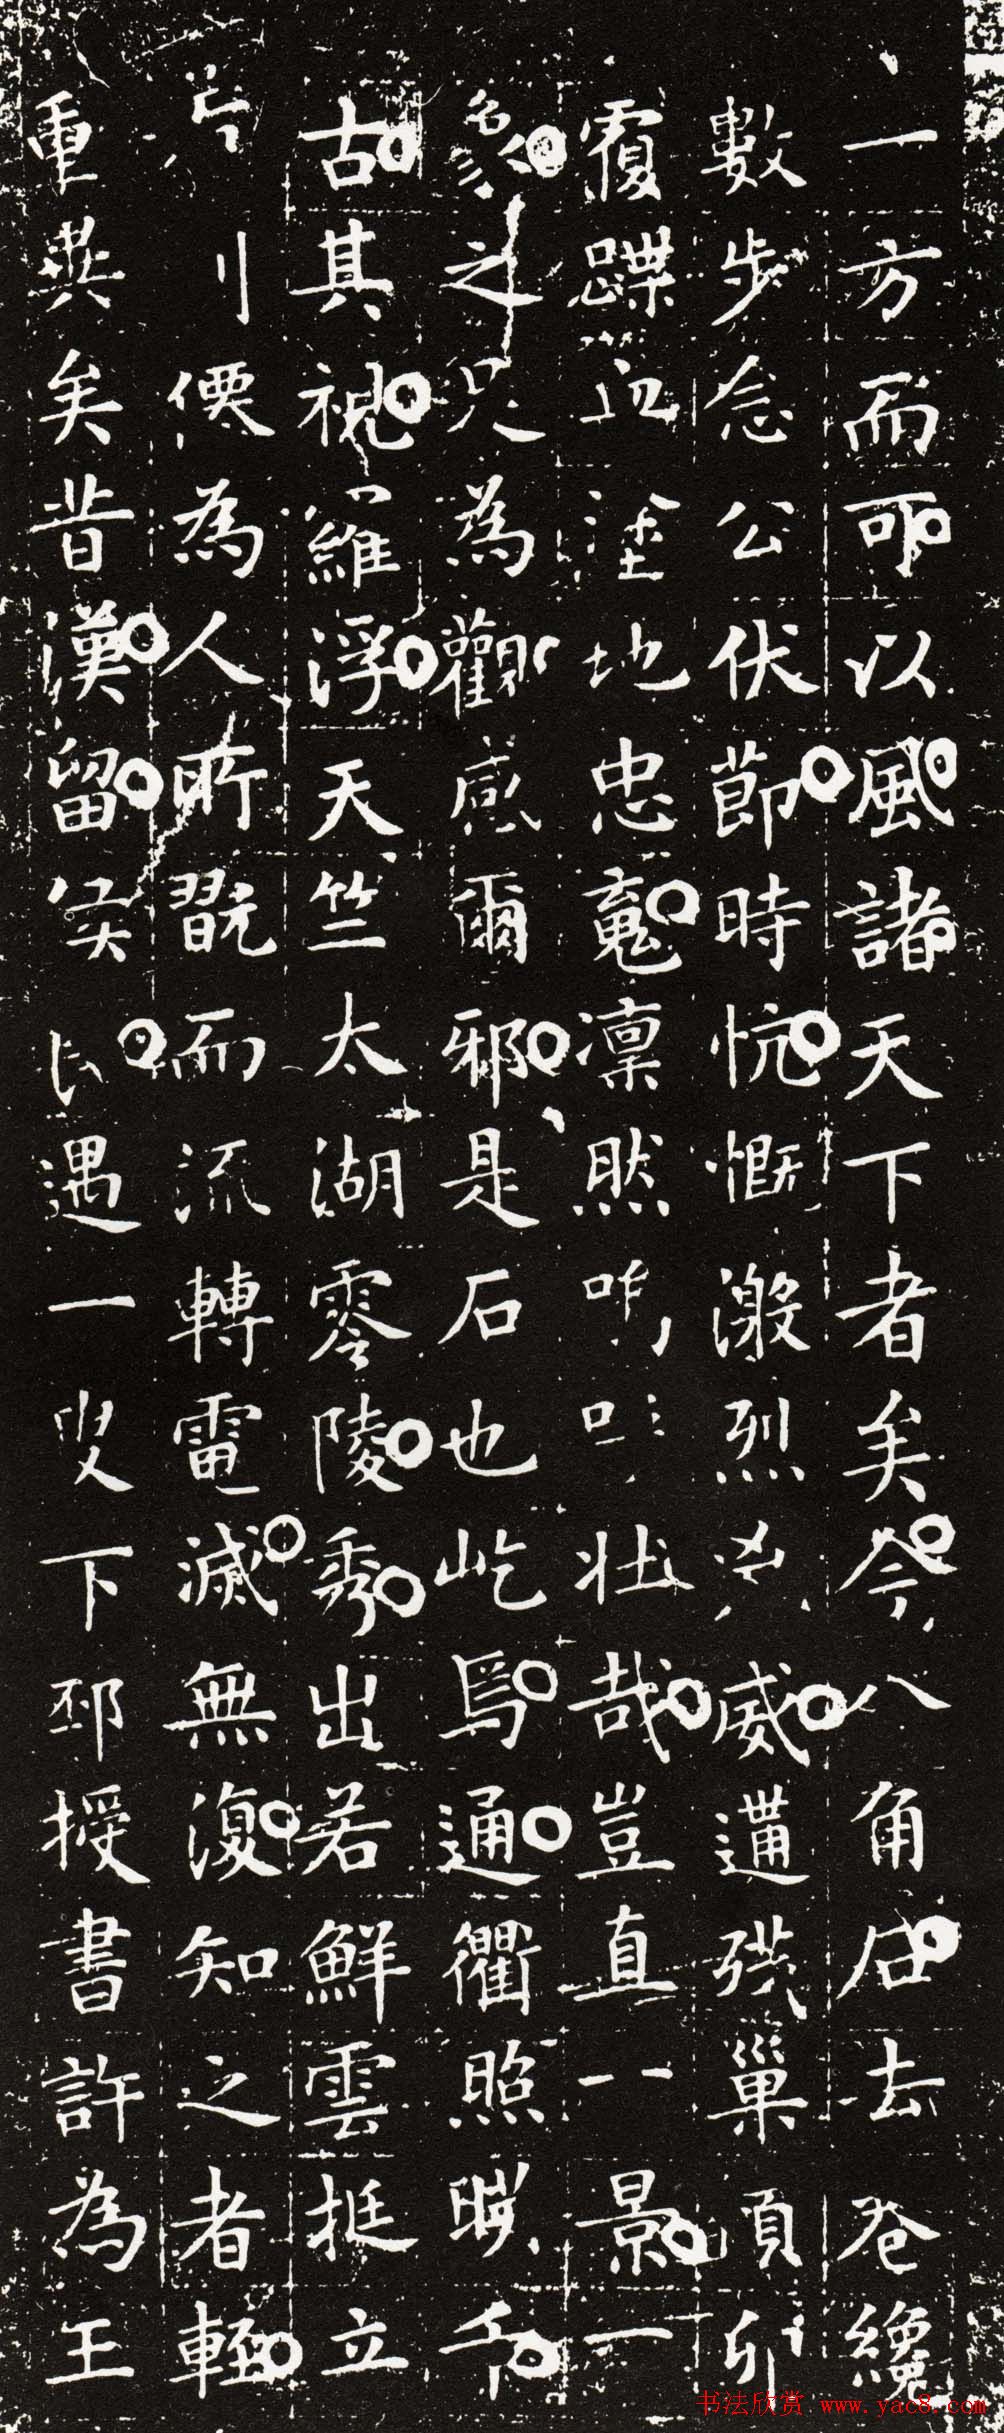 一方而可以風諸天下者矣今八角石去巷纔
數步念公伏節時忼慨激烈凶威遘殃巢頃卵
覆蹀血塗地忠冤凜然壯哉豈直一景一
名之只為觀感爾邪是石也屹焉通衢照暎千
古其視羅浮天竺太湖零陵秀出若鮮雲挺立
僊為人所翫而流轉電滅無復知之者輕
重共矣昔漢留矦良遇一叟下邳授書許為王
书法欣赏 www.yac8.com